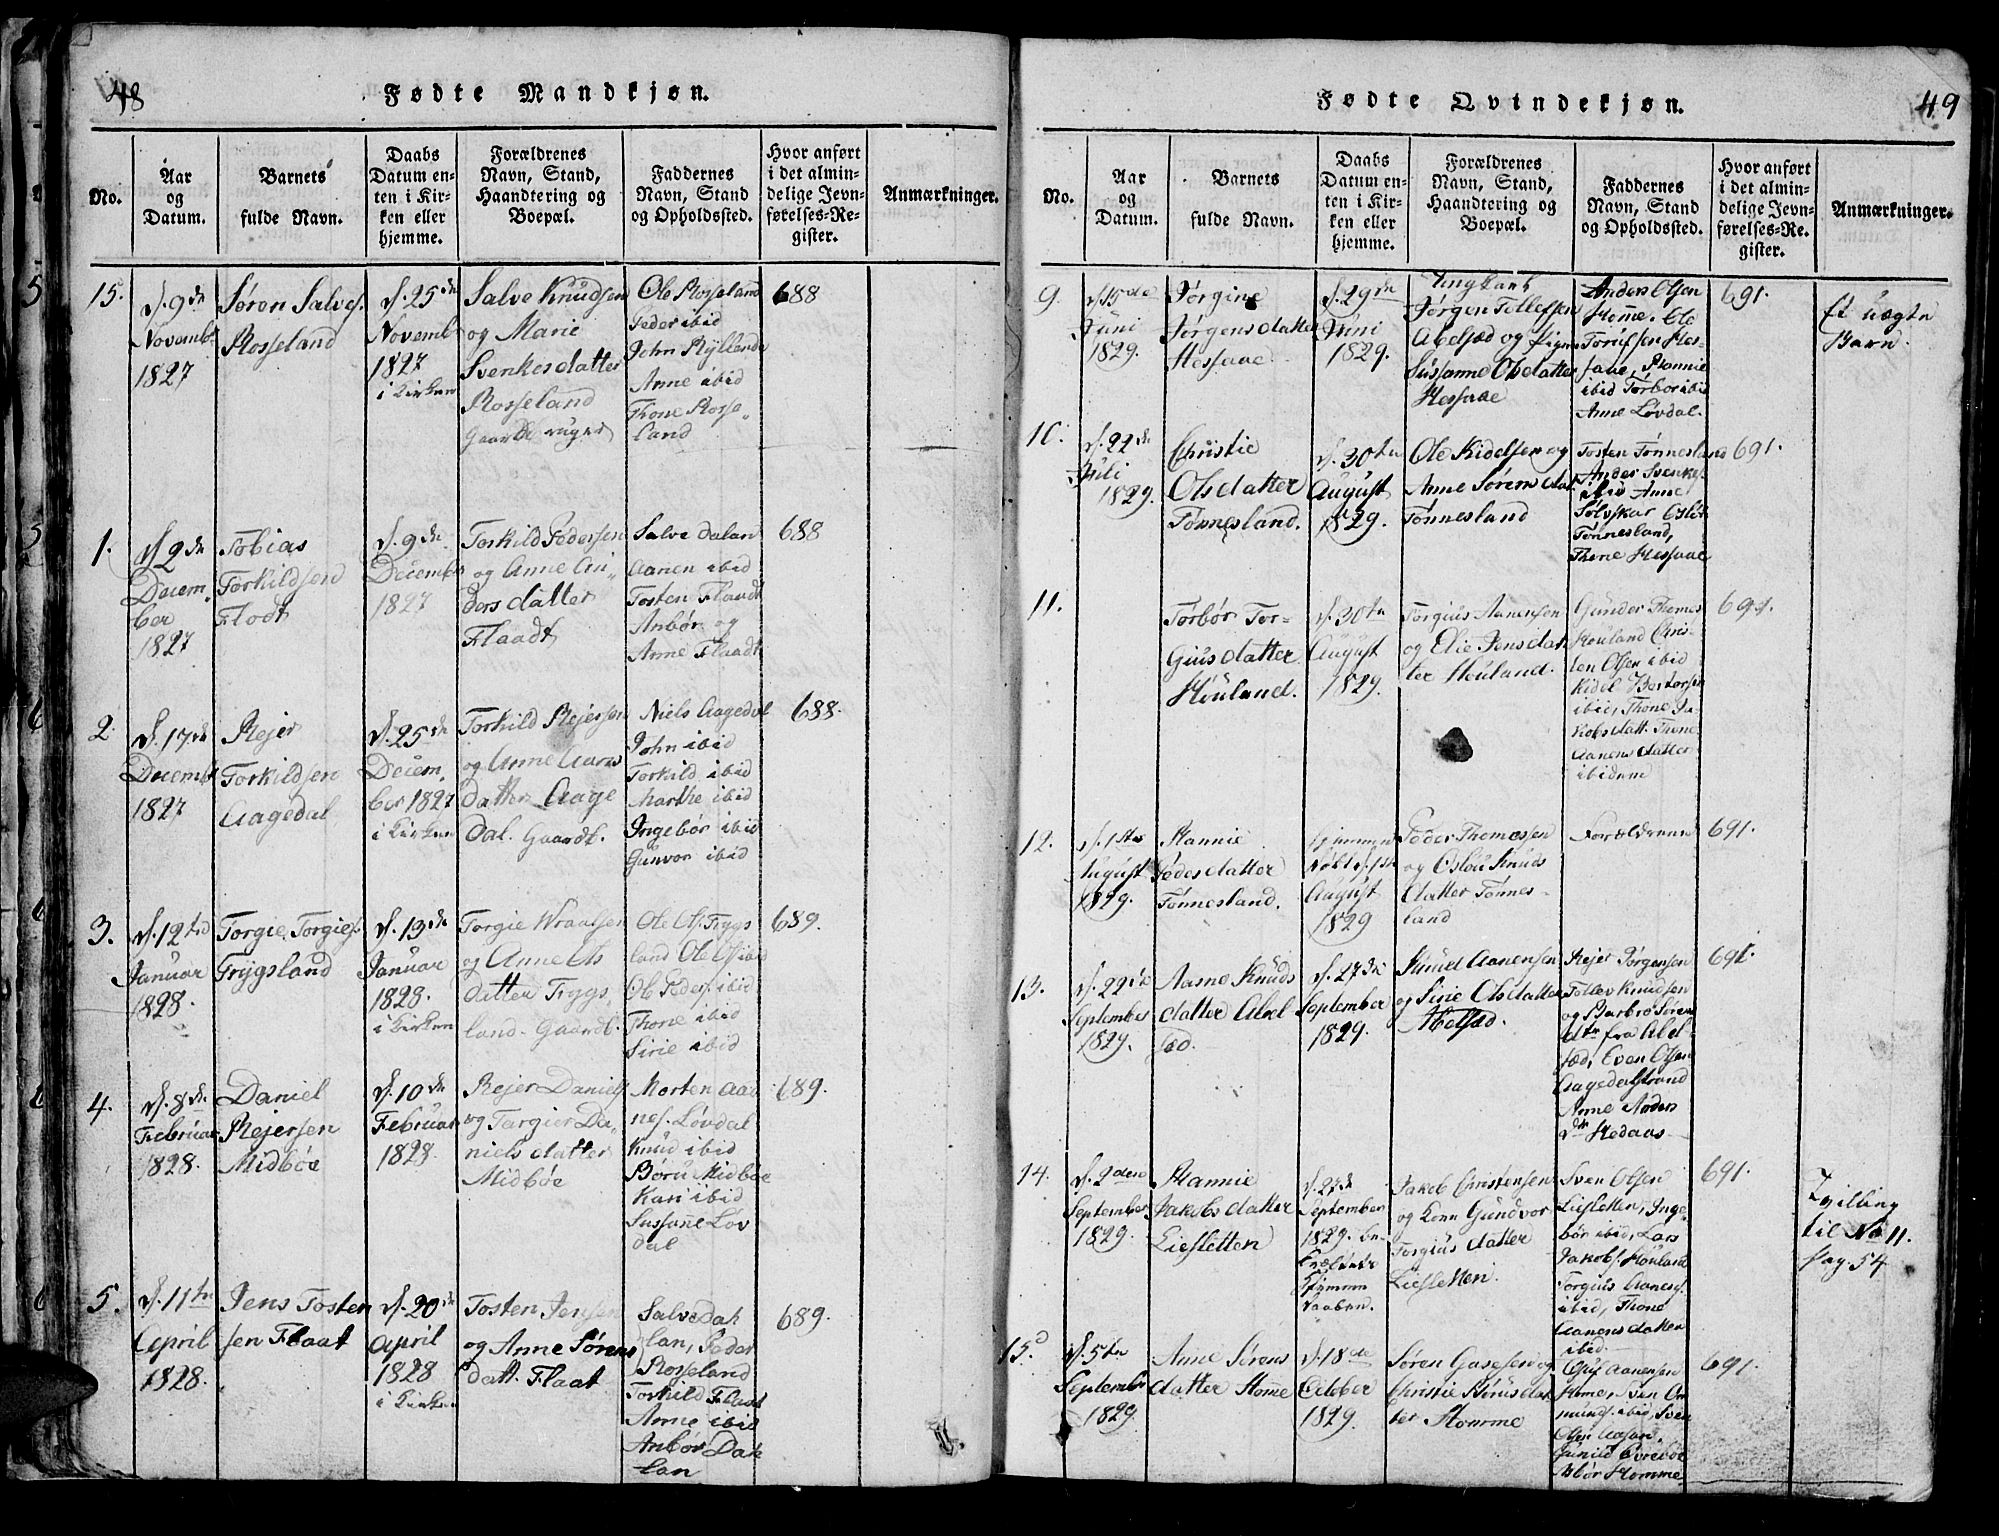 48
Fødte Mandkjøn.
No.
Aar
og
Datum.
Barnets
fulde Navn.
Daabs
Datum en-
ten i Kir-
ken eller
hjemme.
Forældrenes
Navn, Stand,
Haandtering og
Boepæl.
Faddernes
Navn, Stand
og Opholdssted.
Hvor anført
i det almin-
delige Jevn-
førelses-Re-
gister.
Anmærkninger.
15.
d. 9de
Novembr
1827
Søren Salves.
Rosseland
d. 25de
Novemb
1827
i Kirken
Salve Knudsen
og Marie
Svenkesdatter
Rosseland
Gaardbruger
Ole Rosseland
Peder ibid
John Ryllende
Anne ibid
Thone Rosse-
land
688
1.
d. 9de
Decem-
ber
1827
Tobias
Torkildsen
Flodt
d. 9de
December
1827
Torkild Pedersen
og Anne An-
dersdatter
Flaadt
Salve Dalan
Aanen ibid
Tosten Flaadt
Anbør og
Anne Flaadt
688
2.
d. 17de
Decembr
1827
Rejer
Torkildsen
Aagedal
d. 25de
Decem-
ber 1827
i Kirken
Torkild Rejersen
og Anne Aans
datter Aage
dal. Gaardb.
Niels Aagedal
John ibid
Torkild ibid
Marthe ibid
Ingebør ibid
Gunvor ibid
688.
3.
d. 12te
Januar
1828.
Torgie Torgies.
Trygsland
d. 13de
Januar
1828.
i Kirken
Torgie Wraalsen
og Anne Ols
datter Trygs
land. Gaardb.
Ole Ols. Tryggs
land Ole Ols ibid
Ole Peders. ibid
Thone ibid
Sirie ibid
689.
4.
d. 8de
Februar
1828.
Daniel
Rejersen
Midbøe
d. 10de
Februar
1828.
Rejer Daniels
og Targier Da-
nielsdatter
Midbøe
Morten Aad
nes. Løvdal
Knud ibid
Børu Midbøe
Kari ibid
Sussanne Løv
dal
689.
5.
d. 11te
April
1828.
Jens Tosten
sen Flaat
d. 20de
April
1828
i Kirken
Tosten Jensen
og Anne Sørens
datt. Flaat
Salve Dah
lan, Peder
Rosseland
Torkild Flaat
Anne ibid
Anbør Dah
lan
689.
49
Fødte Qvindekjøn.
No.
Aar
og
Datum.
Barnets
fulde Navn.
Daabs
Datum en-
ten i Kir-
ken eller
hjemme.
Forældrenes
Navn, Stand,
Haandtering og
Boepæl.
Faddernes
Navn, Stand
og Opholdssted.
Hvor anført
i det almin-
delige Jevn-
førelses-Re-
gister.
Anmærkninger.
9.
d. 15de
Juni
1829.
Jørgine
Jørgensdatter
Hessaae
d. 29de
Juni
1829.
Ungkarl
Jørgen Tollefsen
Abelsæd og Pigen
Sussanne Olsdatter
Hessaae
Anders Olsen
Homme. Ole
Torulfsen Hes-
saae, Hannie
ibid Torbor ibid
Anne Løvdal.
691.
Et uægte
Barn.
10.
d. 22de
Juli
1829.
Christie
Olsdatter
Tønnesland.
d. 30te
August
1829.
Ole Kidelsen og
Anne Sørensdat.
Tønnesland
Tosten Tønnesland
Ander Svenkes
ibid Anne
Sølvskar Oslou
Tønnesland,
Thone Hessaae
691.
11.
Torbør Tor-
giusdatter
Houland.
d. 30te
August
1829.
Torgius Aanensen
og Elie Jensdat
ter Houland.
Gunder Thomes
Houland Chris-
ten Olsen ibid
Kidel
ibid, Thone Ja-
kobsdatt. Thone
Aanensdatter
ibidem
691.
12.
d. 1ste
August
1829.
Hannie
Pedersdatter
Tønnesland.
hjemme
døbt d. 1ste
August
1829
Peder Thomessen
og Oslou Knuds
datter Tønnes-
land
Forældrene
691.
13.
d. 22de
September
1829.
Aasne Knuds
datter Abel
sæd.
d. 27de
September
1829.
Knud Aanensen
og Sirie Olsdatter
Abelsæd.
Rejer Jørgensen
Tollev Knudsen
og Barbro Sørens
dtr fra Abel
sæd, Even Olsen
Aagedalstrand
Anne Anders
dtr Hedaas
691.
14.
d. 2den
September
1829.
Hannie
Jakobsdatter
Liesletten
d. 27de
September
1829.
Jakob Christensen
og Kone Gundvor
Torgiusdatter
Liesletten.
Sven Olsen
Liesletten, Inge-
bør ibid, Lars
Jakobs. Houland
Torgius Aanens.
ibid, Thone
Aanensdatter
ibid.
691.
Tvilling
til No 11.
pag. 54
15.
d. 5te
September
1829.
Anne Sørens
datter Homme
d. 18de
October
1829.
Søren Gasesen og
Christie Børusdat
ter Homme
Gjus Aanensen
Homme, Sven Om
munds. ibid, Sven
Olsen Aasan.
Gunild Øvrebøe
Abør Homme
691.